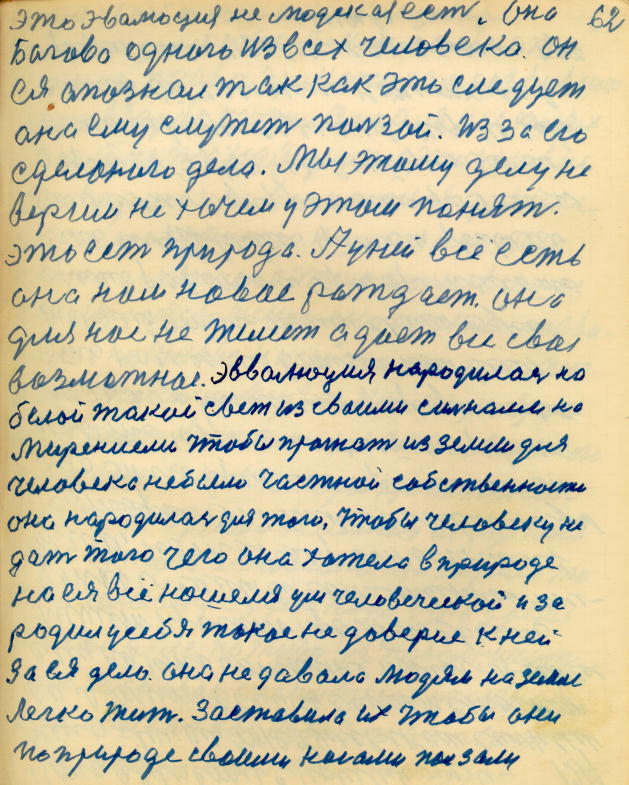 это эвалюция не людская есть. Она 62
Богова одного из всех человека. он
ся опознал так как это следует
она ему служет ползой. Из за его
сделоного дела. Мы этому делу не
верим не хочем у этом понят.
это ест природа. А у ней всё есть
она нам новое раждает. она
для нас не жилет а дает все свое
возможное. Эввалюция народилас на
белой такой свет из своими силами но
мирением чтобы прогнат из земли для
человека небыло частной собственности
она народилас для того, чтобы человеку не
дат того чего она хотела в природе
на ся всё нашемя ум человеческой и за
родил у себя такое не доверие к ней
за ся дело. она не давала людям на земле
легко жит. Заставила их чтобы они
по природе своими ногами ползали